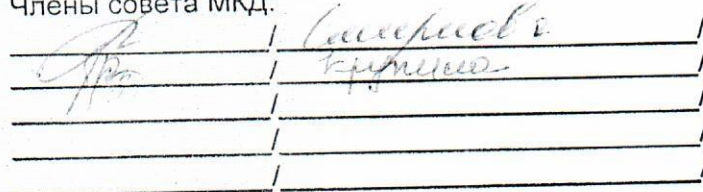 Члены совета МКД:
/ Смирнова /
/ Крупина /
/ /
/ /
/ /